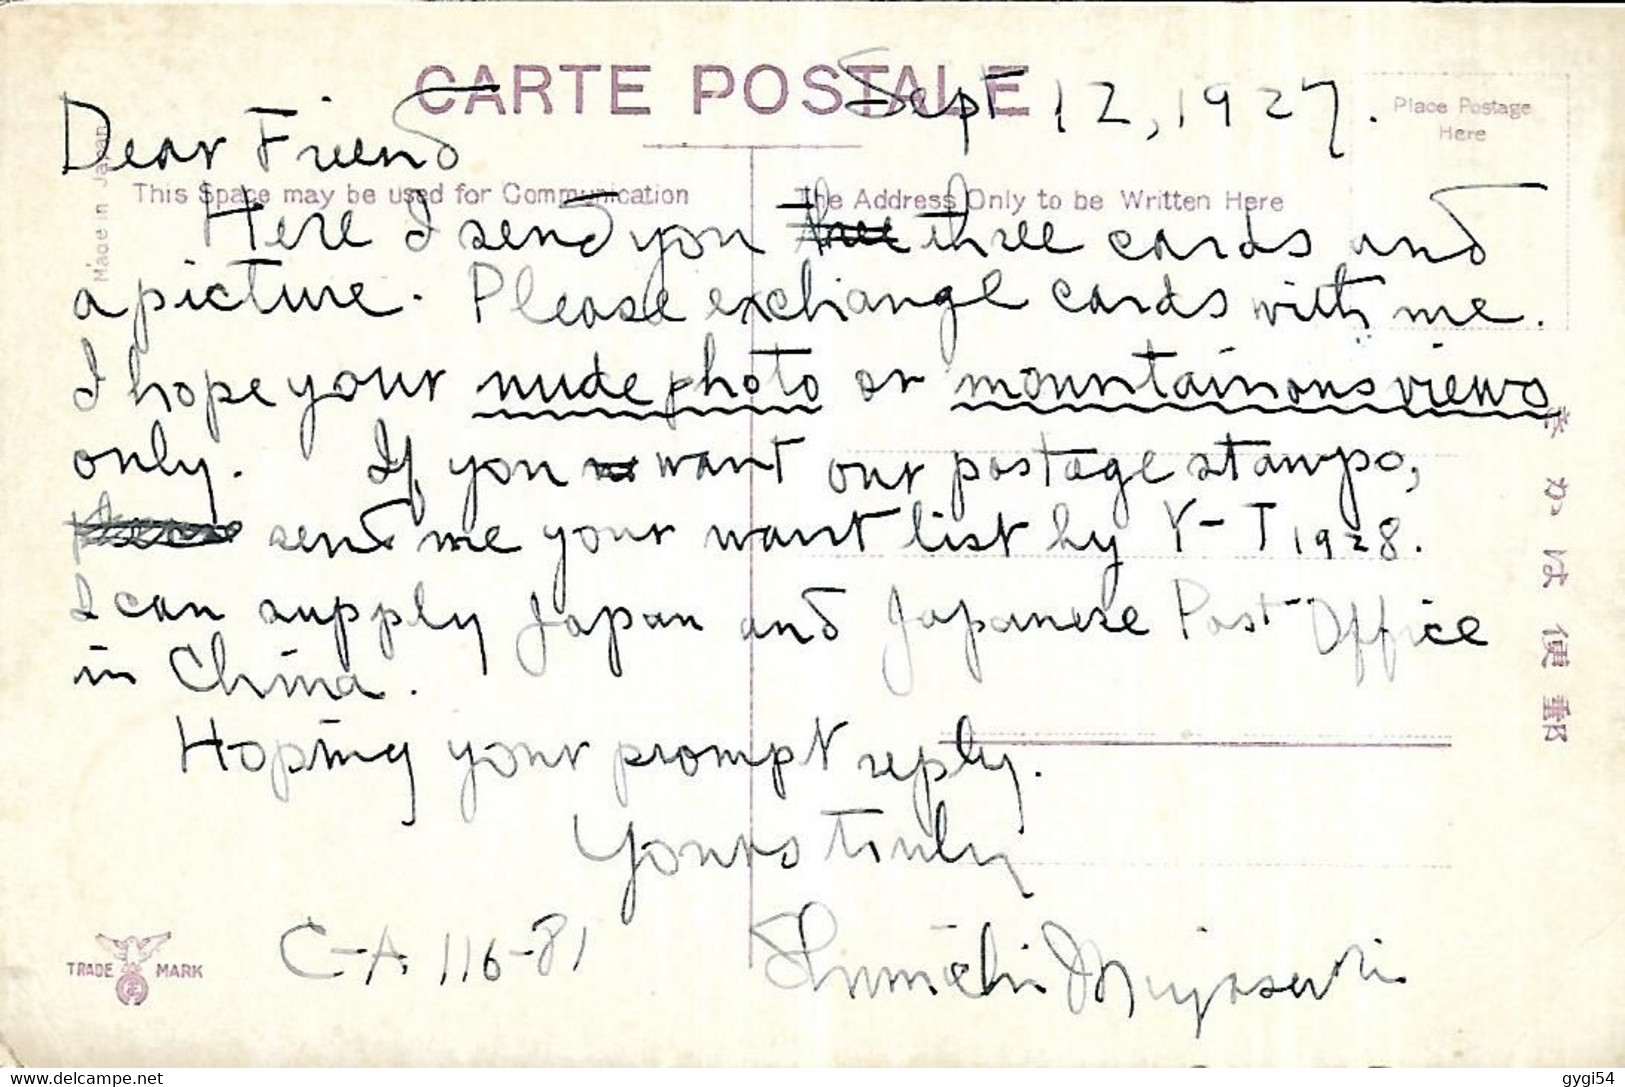 CARTE POSTALE
Place Postage
Here
Made in Japan
This Space may be used for Communication
The Address Only to be Written Here
Sept 12, 1927.
Dear Friend
Here I send you three cards and
a picture. Please exchange cards with me.
I hope your nude photo or mountainous views
only. If you want our postage stamps,
send me your want list by Y-T 1928.
I can supply Japan and Japanese Post Office
in China.
Hoping your prompt reply.
Yours truly
C-A 116-81
TRADE MARK
きかは便郵
www.delcampe.net
gygi54